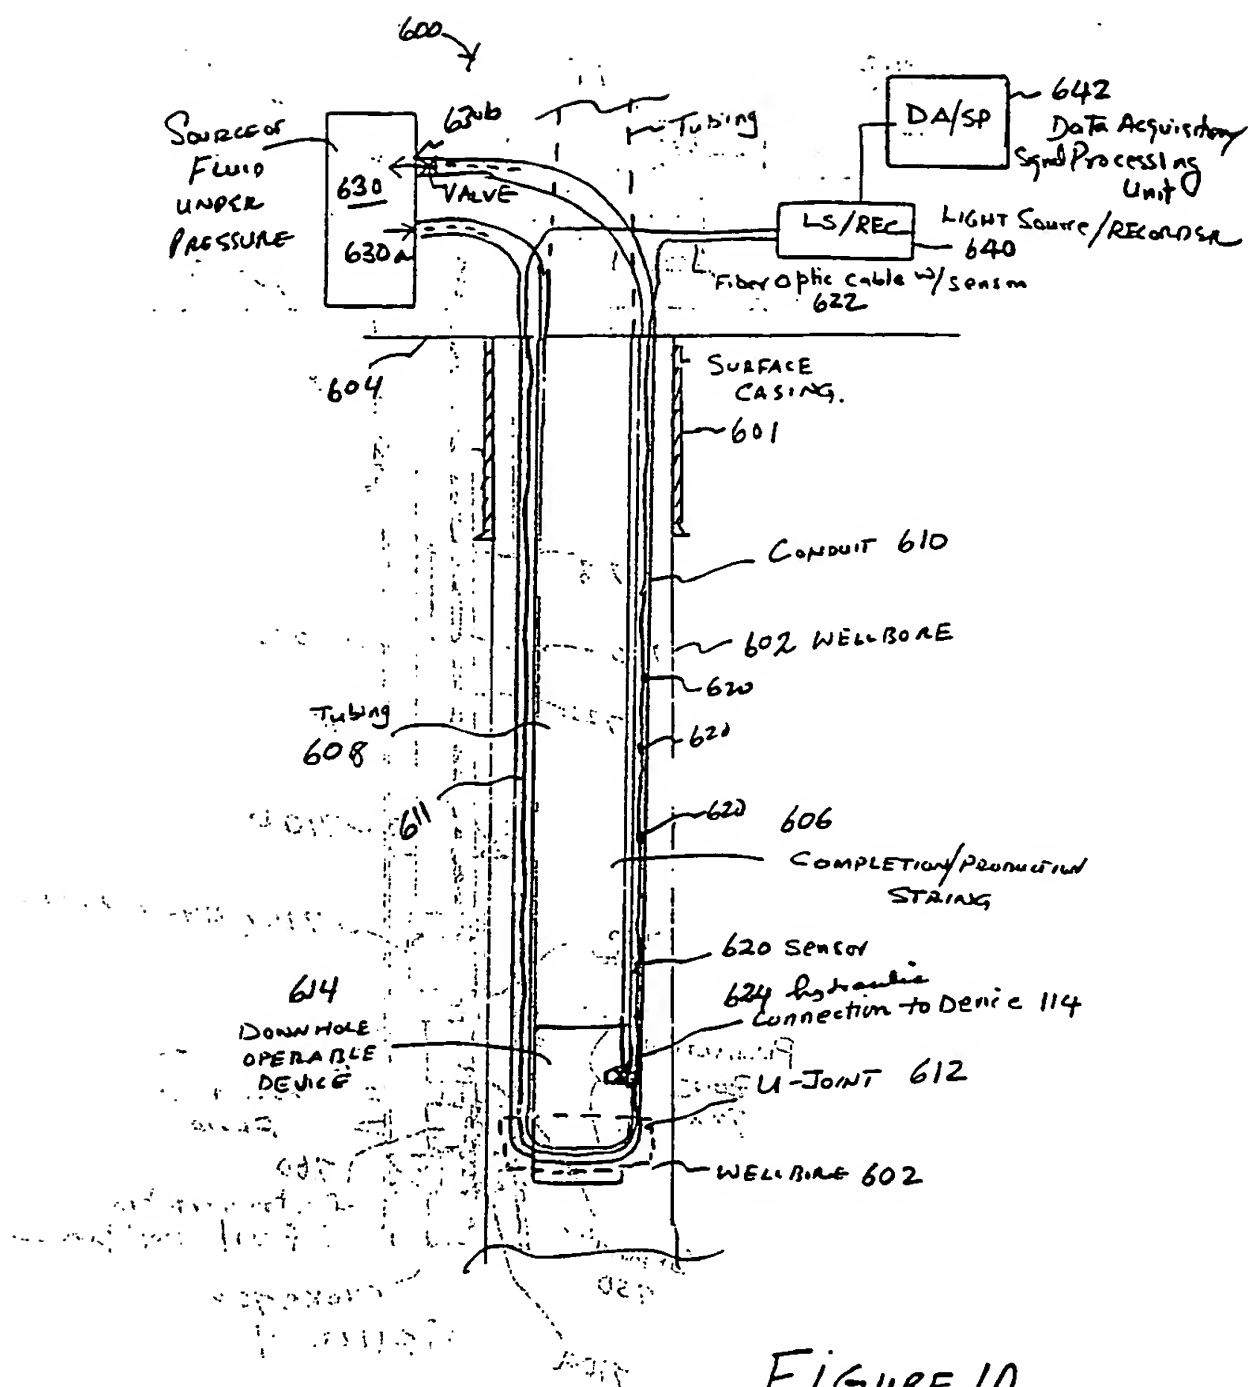 600
SOURCE OF
FLUID
UNDER
PRESSURE
630
630b
VALVE
630a
Tubing
DA/SP
642
Data Acquisition
Signal Processing
Unit
LS/REC
LIGHT Source/RECORDER
640
Fiber Optic cable w/sensor
622
604
SURFACE
CASING.
601
CONDUIT 610
602 WELLBORE
620
620
620
Tubing
608
611
606
COMPLETION/PRODUCTION
STRING
620 Sensor
624 hydraulic
Connection to Device 114
614
DOWNHOLE
OPERABLE
DEVICE
U-JOINT 612
WELLBORE 602
FIGURE 10